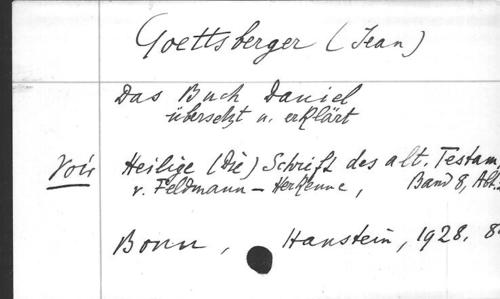 Goettsberger (Jean)
Das Buch Daniel
übersetzt u. erklärt
Voir Heilige (Die) Schrift des alt. Testam.
v. Feldmann - Herkenne, Band 8, Abt.
Bonn, Hanstein, 1928. 8°